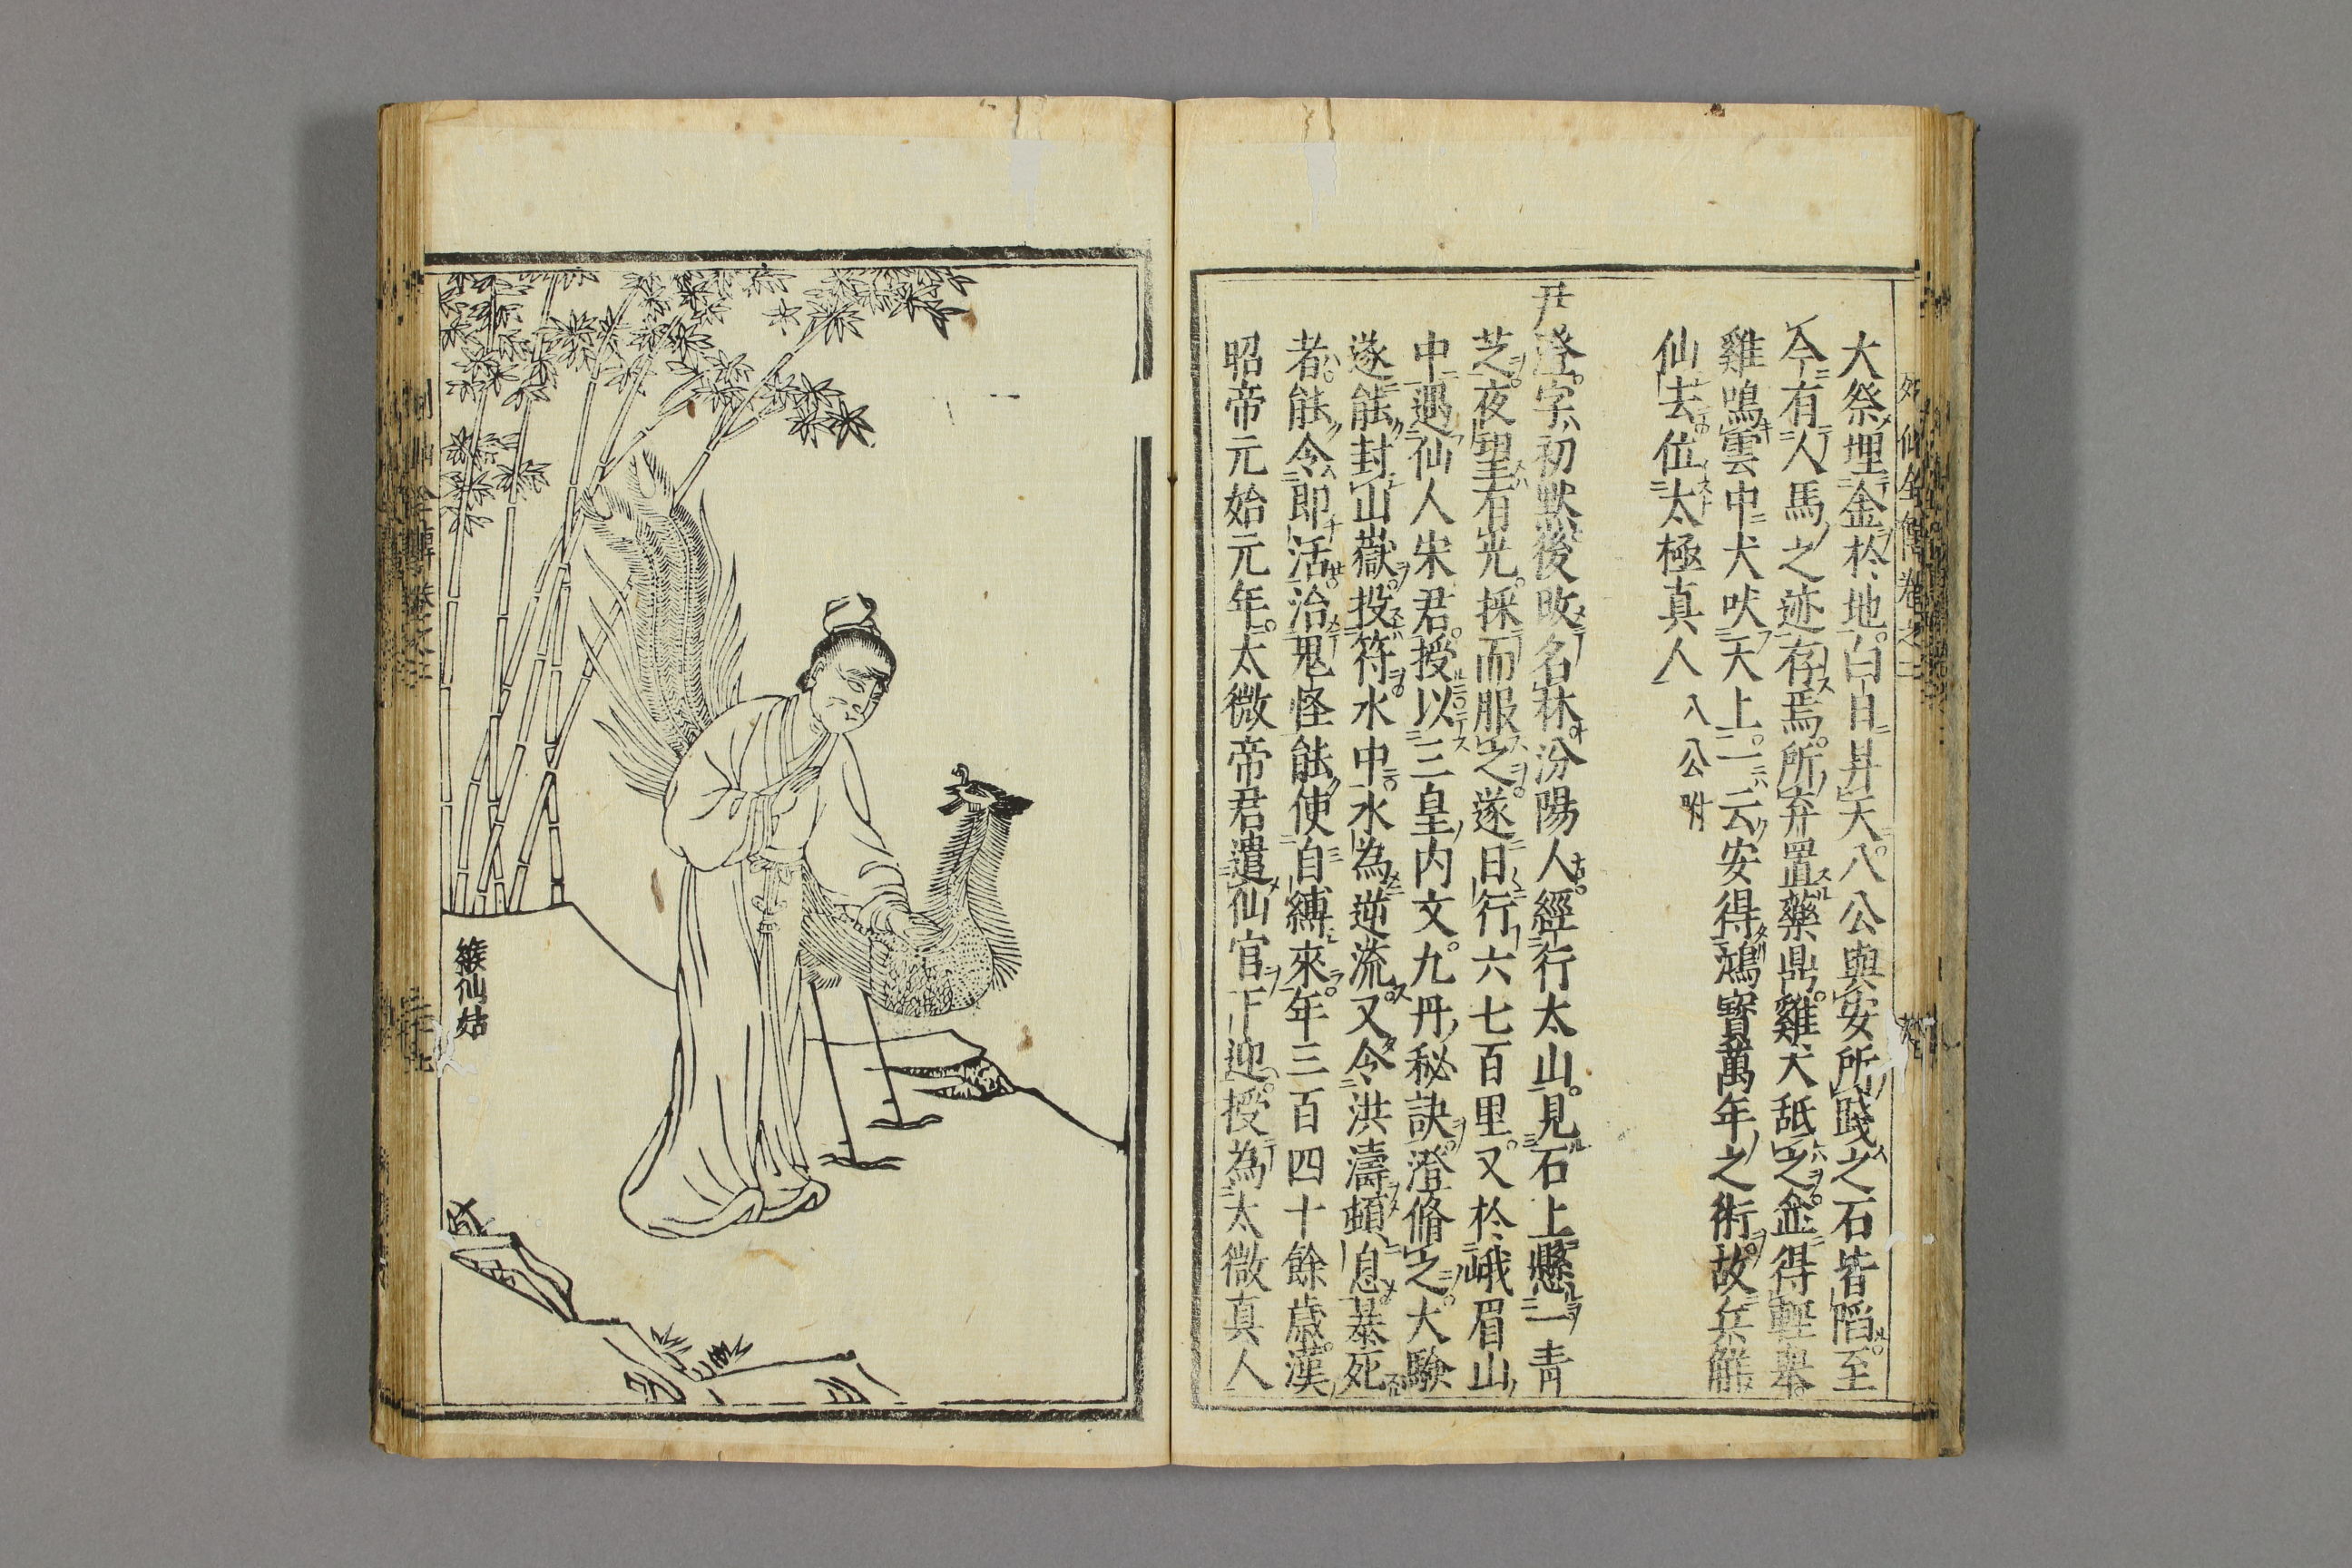 大祭埋金於地白日昇天八公與安所踐之石皆陷至
今有人馬之迹存焉所弃置藥鼎雞犬舐之並得輕舉
雞鳴雲中犬吠天上一云安得鴻寶萬年之術故兵解
仙去位太極真人 八公附
尹澄字初默後改名林汾陽人經行太山見石上懸一青
芝夜望有光採而服之遂日行六七百里又於峨眉山
中遇仙人宋君授以三皇内文九丹秘訣澄脩之大驗
遂能封山嶽投符水中水為逆流又令洪濤頓息暴死
者能令即活治鬼怪能使自縛來年三百四十餘歳漢
昭帝元始元年太微帝君遣仙官下迎授為太微真人
緱仙姑